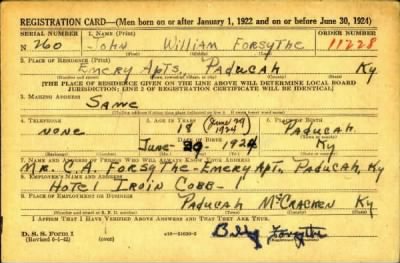 REGISTRATION CARD—(Men born on or after January 1, 1922 and on or before June 30, 1924)
SERIAL NUMBER 1. NAME (Print) ORDER NUMBER
N 260 John William Forsythe 11228
(First) (Middle) (Last)
2. PLACE OF RESIDENCE (Print)
Emery Apts. Paducah Ky
(Number and street) (Town, township, village, or city) (County) (State)
[THE PLACE OF RESIDENCE GIVEN ON THE LINE ABOVE WILL DETERMINE LOCAL BOARD
JURISDICTION; LINE 2 OF REGISTRATION CERTIFICATE WILL BE IDENTICAL]
3. MAILING ADDRESS
Same
4. TELEPHONE 5. AGE IN YEARS 6. PLACE OF BIRTH
none 18 Paducah
DATE OF BIRTH
June 1924 Ky
7. NAME AND ADDRESS OF PERSON WHO WILL ALWAYS KNOW YOUR ADDRESS
Mr. C.A. Forsythe-Emery Apt. Paducah, Ky
8. EMPLOYER'S NAME AND ADDRESS
Hotel Irvin Cobb - "
9. PLACE OF EMPLOYMENT OR BUSINESS
Paducah McCracken Ky
(Number and street or R. F. D. number) (Town) (County) (State)
I AFFIRM THAT I HAVE VERIFIED ABOVE ANSWERS AND THAT THEY ARE TRUE.
D. S. S. Form 1
(Revised 6-1-42) (over) Billy Forsythe